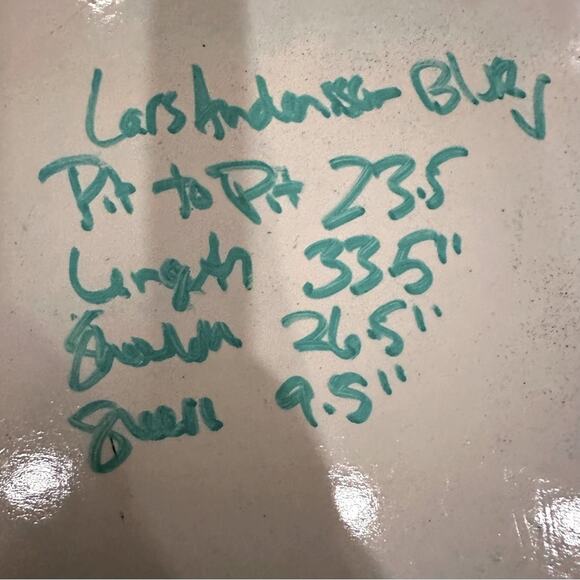 Lars Anderson Blue
Pit to Pit 23.5
Length 33.5"
Shoulder 26.5"
Sleeve 9.5"